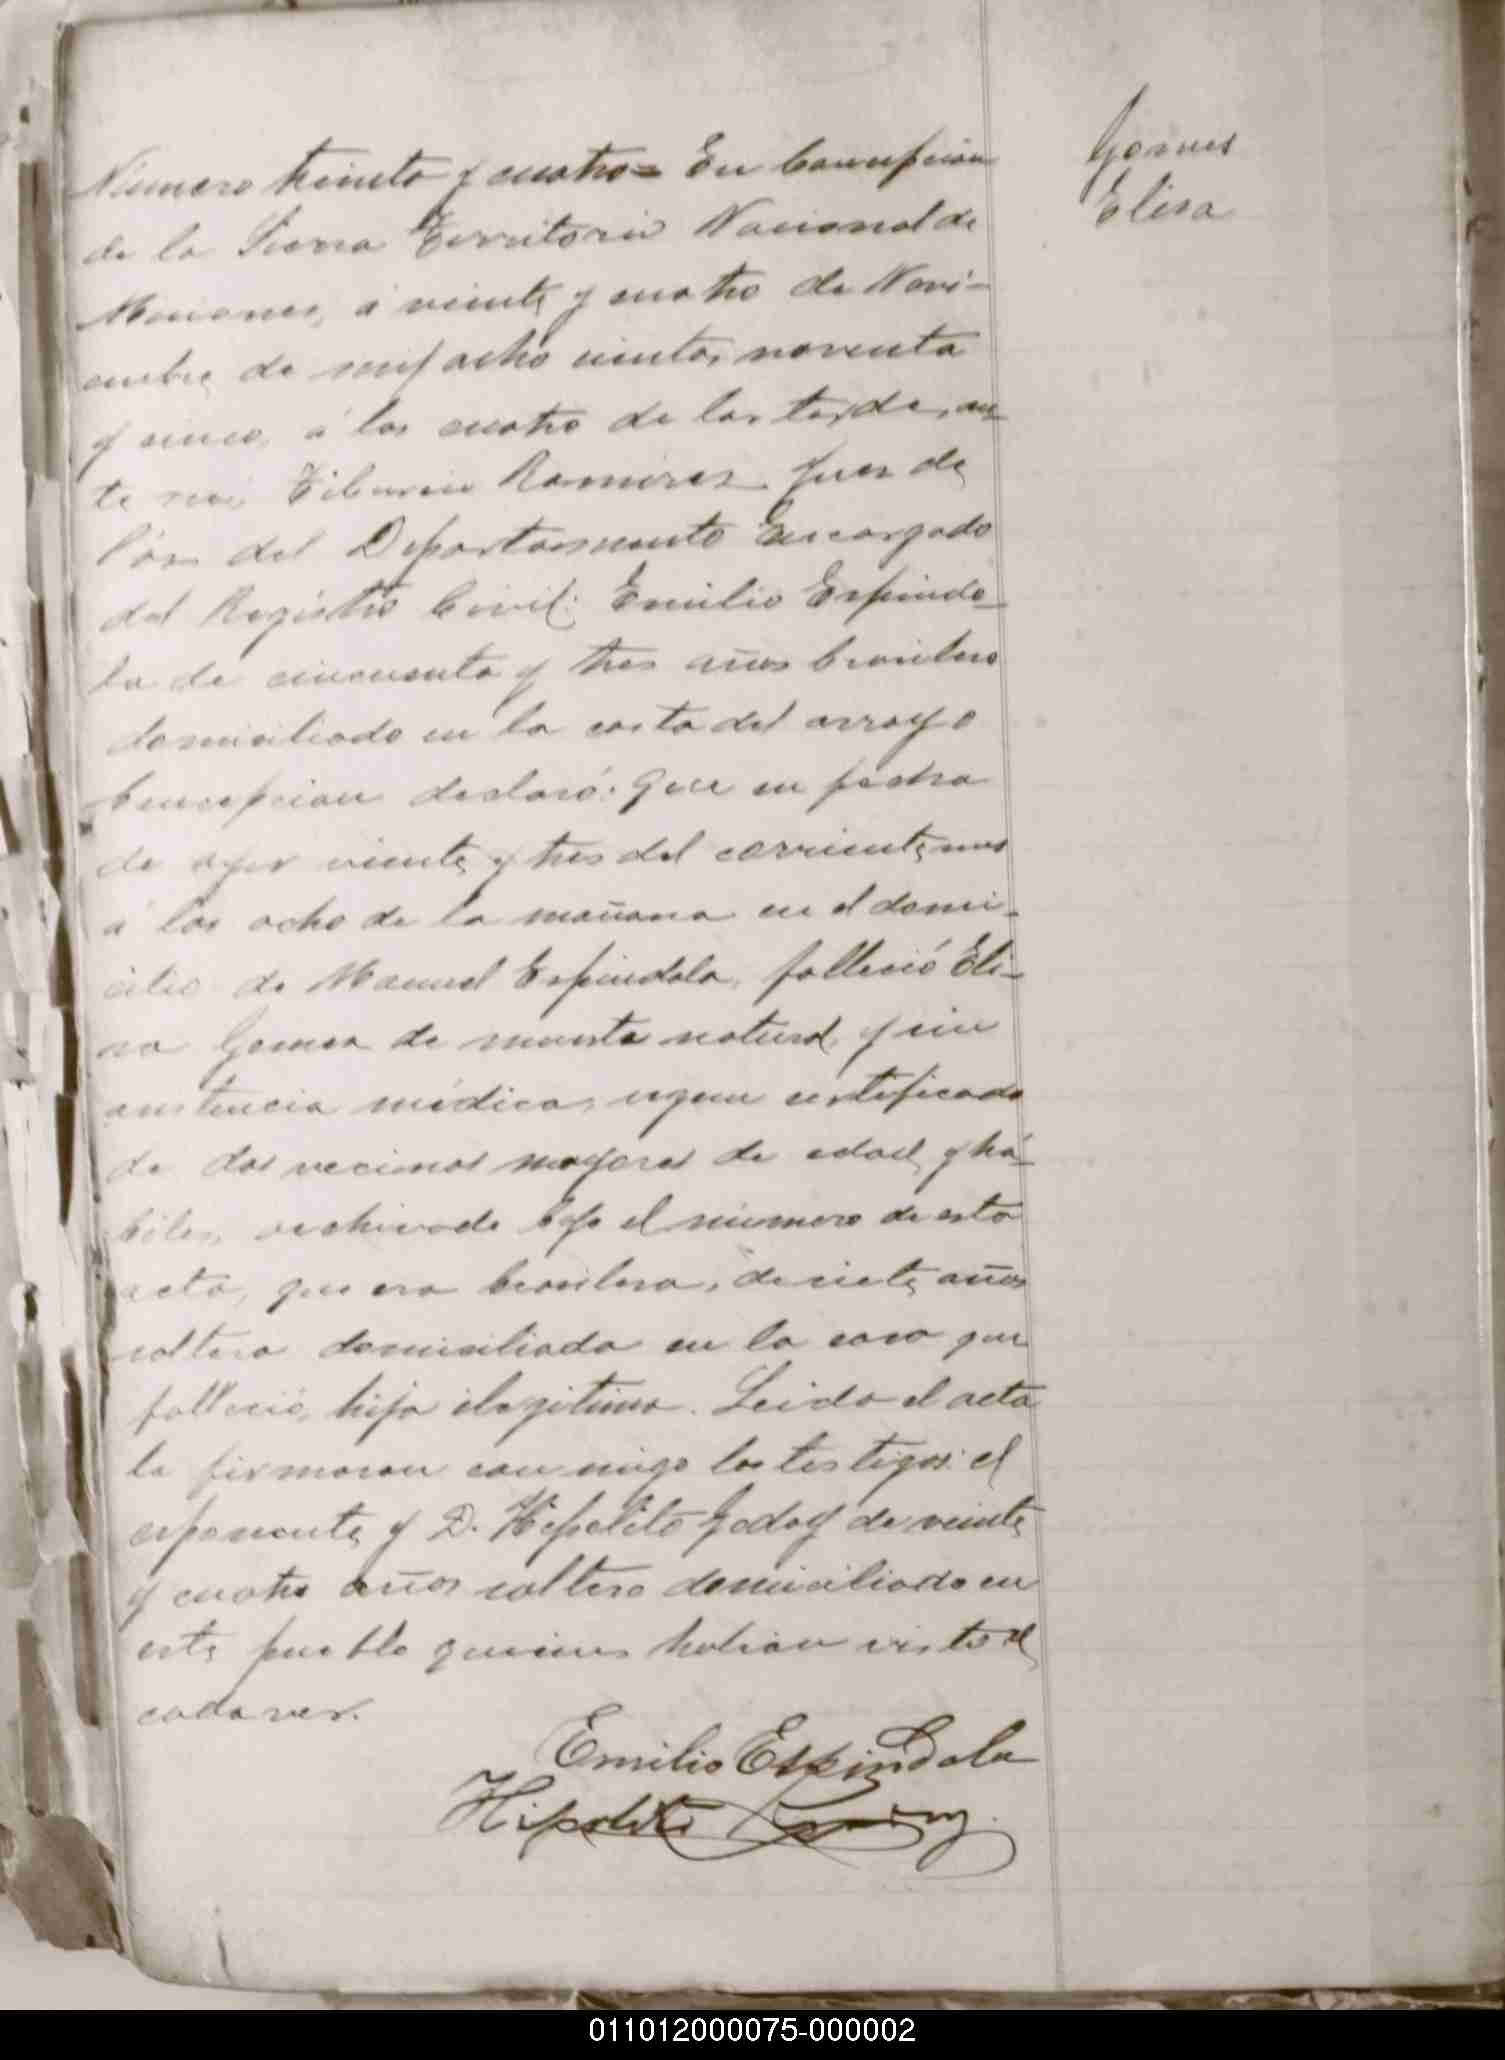 Gomes
Elisa
Número treinta y cuatro = En Concepcion
de la Sierra Territorio Nacional de
Misiones, á veinte y cuatro de Novi-
embre de mil ocho cientos noventa
y cinco, á las cuatro de la tarde, an-
te mi, Tiburcio Ramirez Juez de
Páz del Departamento Encargado
del Registro Civil: Emilio Espindo-
la de cincuenta y tres años brasilero
domiciliado en la costa del arroyo
Concepcion declaró: Que en fecha
de ayer veinte y tres del corriente mes
á las ocho de la mañana en el domi-
cilio de Manuel Espindola, falleció Eli-
sa Gomes de muerte natural, y sin
asistencia médica, segun certificado
de dos vecinos mayores de edad, y há-
biles, archivado bajo el número de esta
acta, que era brasilera, de siete años
soltera domiciliada en la casa que
falleció, hija ilegitima. Leida el acta
la firmaron con migo los testigos: el
esponente, y D. Hipolito Godoy de veinte
y cuatro años soltero domiciliado en
este pueblo quienes habian visto el
cadaver.
Emilio Espindola
Hipolito Godoy
011012000075-000002